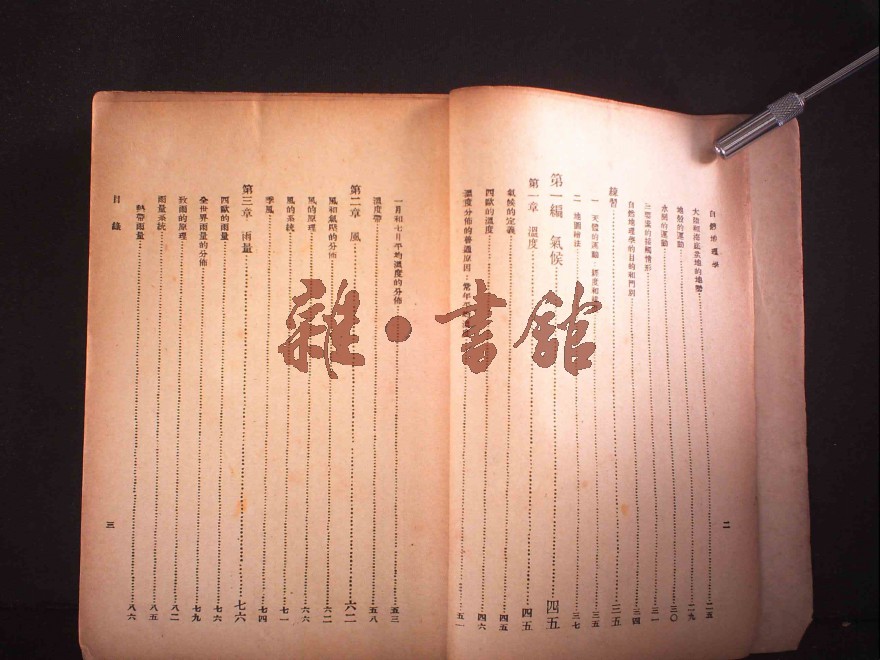 自然地理學
大陸和海底盆地的地勢……二五
地殼的運動……二九
水圈的運動……三〇
三電素的接觸情形……三一
自然地理學的目的和門別……三四
練習……三五
一 天體的運動 經度和……三五
二 地圖繪法……三七
第一編 氣候……四五
第一章 溫度……四五
氣候的定義……四五
西歐的溫度……四六
溫度分佈的普遍原因 常年……五一
二
一月和七月平均溫度的分佈……五三
溫度帶……五八
第二章 風……六二
風和氣壓的分佈……六二
風的原理……六六
風的系統……七一
季風……七四
第三章 雨量……七六
西歐的雨量……七六
全世界雨量的分佈……七九
致雨的原理……八二
雨量系統……八五
熱帶雨量……八六
目錄
三
雜·書館